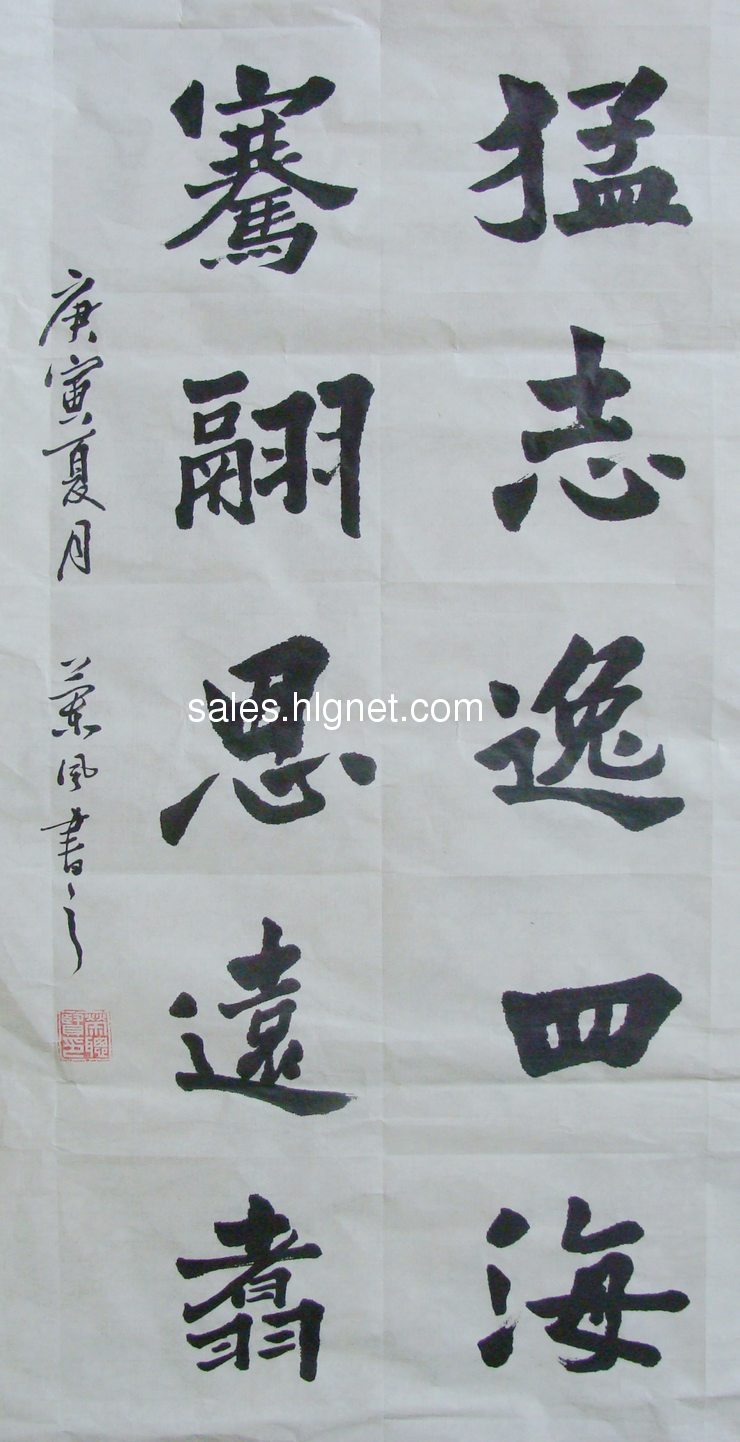 猛志逸四海
騫翮思遠翥
庚寅夏月 蘭風書之
sales.hlgnet.com